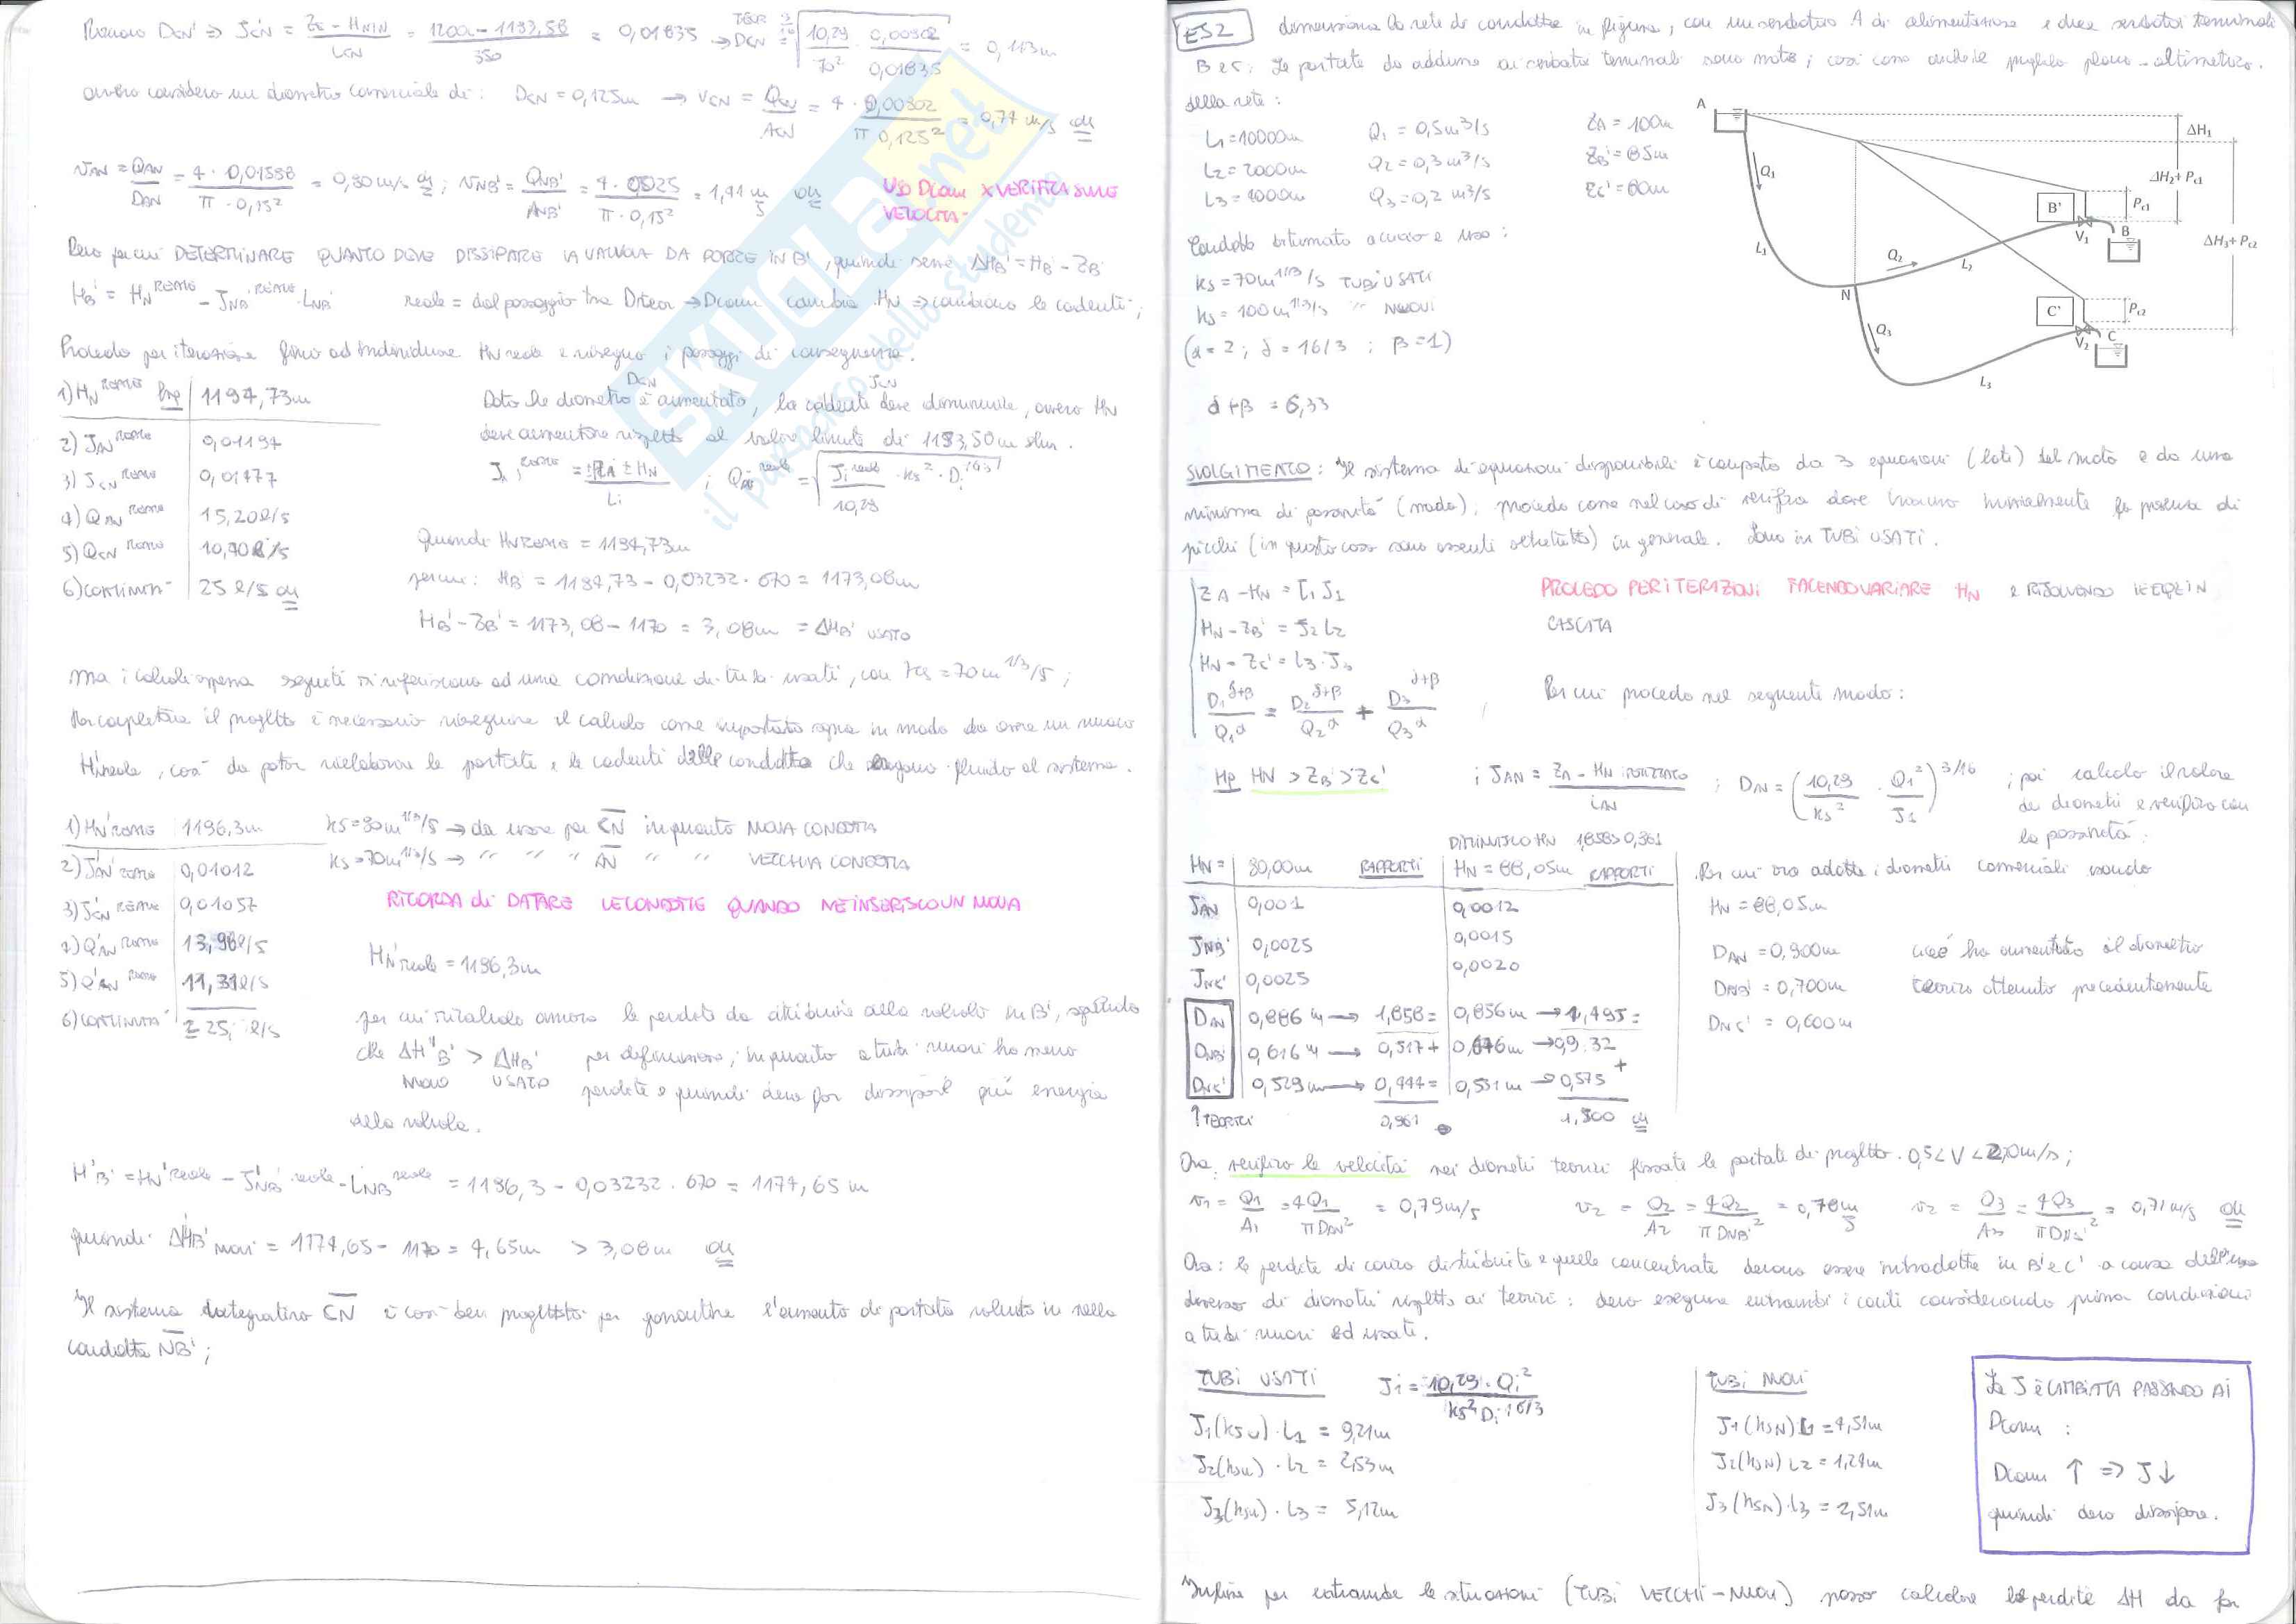 Ricavo DCN' => JCN = ZC - HNIN / LCN = 1200 - 1193,58 / 350 = 0,01835 → DCN TEOR = 3/16 √ 10,29 / 70² · 0,00302 / 0,01835 = 0,113m
ovvero considero un diametro commerciale di: DCN = 0,125m → VCN = QCN / ACN = 4 · 0,00302 / π 0,125² = 0,77 m/s ok
VAN = QAN / DAN = 4 · 0,01598 / π · 0,15² = 0,90 m/s ok; VNB' = QNB' / ANB' = 4 · 0,025 / π · 0,15² = 1,41 m/s ok
USO Dcom X VERIFICA SULLE VELOCITÀ
DETERMINARE QUANTO DEVE DISSIPARE LA VALVOLA DA PORRE IN B', quindi serve ΔHB' = HB' - ZB'
HB' = HN REALE - JNB' REALE · LNB' reale = dal passaggio tra Dteor → Dcom cambia HN => cambiano le cadenti;
Procedo per iterazione fino ad individuare HN reale e eseguo i passaggi di conseguenza.
1) HN REALE hp 1194,73m
2) JAN REALE 0,01197
3) JCN REALE 0,01477
4) QAN REALE 15,20 l/s
5) QCN REALE 10,70 l/s
6) CONTINUITÀ 25 l/s ok
Dato che diametro DCN è aumentato, la cadente JCN deve diminuire, ovvero HN
deve aumentare rispetto al valore limite di 1193,50m slm.
Ji REALE = Zi ± HN / Li ; Q reale = √ Ji reale / 10,29 · ks² · Di 16/3
Quindi HN REALE = 1194,73m
per cui: HB' = 1194,73 - 0,03232 · 670 = 1173,08m
HB' - ZB' = 1173,08 - 1170 = 3,08m = ΔHB' USATO
Ma i calcoli appena eseguiti si riferiscono ad una condizione di tubi usati, con ks = 70 m 1/3/s;
Per completare il progetto è necessario rieseguire il calcolo come riportato sopra in modo da avere un nuovo
HN reale, così da poter rielaborare le portate e le cadenti delle condotte che portano fluido al sistema.
1) HN REALE 1196,3m
2) JAN REALE 0,01012
3) JCN REALE 0,01057
4) Q'AN REALE 13,98 l/s
5) Q'AN REALE 11,31 l/s
6) CONTINUITÀ ≅ 25, l/s
ks = 90 m 1/3/s → da usare per CN in quanto NUOVA CONDOTTA
ks = 70 m 1/3/s → " " " AN " " VECCHIA CONDOTTA
RICORDA di DATARE LE CONDOTTE QUANDO NE INSERISCO UN NUOVA
H'N reale = 1196,3m
per cui ricalcolo ancora le perdite da attribuire alla valvola in B', sapendo
che ΔH'B' NUOVO > ΔHB' USATO per definizione, in quanto a tubi nuovi ho meno
perdite e quindi devo far dissipare più energia
alla valvola.
H'B' = HN' reale - J'NB' reale · LNB' reale = 1196,3 - 0,03232 · 670 = 1174,65 m
quindi: ΔHB' nuovi = 1174,65 - 1170 = 4,65m > 3,08m ok
Il sistema integrativo CN è così ben progettato per garantire l'aumento di portata voluto in nella
condotta NB';
ES2 dimensiona la rete di condotte in figura, con un serbatoio A di alimentazione e due serbatoi terminali
B e C: Le portate da addurre ai serbatoi terminali sono note; così come anche il profilo plano-altimetrico.
della rete:
L1 = 10000m Q1 = 0,5 m³/s ZA = 100m
L2 = 2000m Q2 = 0,3 m³/s ZB' = 85m
L3 = 4000m Q3 = 0,2 m³/s ZC' = 80m
Condotto bitumato acciaio e uso:
ks = 70 m 1/3/s TUBI USATI
ks = 100 m 1/3/s " NUOVI
(α = 2; δ = 16/3; β = 1)
δ + β = 6,33
A
ΔH1
ΔH2+ Pc1
ΔH3+ Pc2
Q1
L1
Q2
L2
N
Q3
L3
B'
V1
B
Pc1
C'
V2
C
Pc2
SVOLGIMENTO: Il sistema di equazioni disponibili è composto da 3 equazioni (lati) del moto e da una
minima di passività (nodo); procedo come nel caso di verifica dove bisogna inizialmente la presenza di
picchi (in questo caso sono assenti oltretutto) in generale. Sono in TUBI USATI.
ZA - HN = L1 J1
HN - ZB' = J2 L2
HN - ZC' = L3 · J3
D1 δ+β / Q1 α = D2 δ+β / Q2 α + D3 δ+β / Q3 α
PROCEDO PER ITERAZIONI FACENDO VARIARE HN E RISOLVENDO LE EQ. IN
CASCATA
Per cui procedo nel seguente modo:
Hp HN > ZB' > ZC' ; JAN = ZA - HN IPOTIZZATO / LAN ; DAN = (10,29 / ks² · Q1² / J1) 3/16 ; poi calcolo il valore
dei diametri e verifico con
la passività.
DIMINUISCO HN 1,858 > 0,961
HN = 90,00m RAPPORTI HN = 88,05m RAPPORTI
JAN 0,001 0,0012
JNB' 0,0025 0,0015
JNC' 0,0025 0,0020
DAN 0,886 m → 1,858 = 0,856m → 1,495 =
DNB' 0,616 m → 0,517 + 0,676m → 0,932 +
DNC' 0,529 m → 0,444 = 0,551m → 0,575
↑ TEORICI 0,961 1,500 ok
Per cui ora adotto i diametri commerciali usando
HN = 88,05m
DAN = 0,900m cioè ho aumentato il diametro
DNB' = 0,700m teorico ottenuto precedentemente
DNC' = 0,600m
Ora, verifico le velocità nei diametri teorici fissate le portate di progetto. 0,5 < V < 2,0 m/s;
v1 = Q1 / A1 = 4Q1 / π DAN² = 0,79 m/s v2 = Q2 / A2 = 4Q2 / π DNB'² = 0,78 m/s v2 = Q3 / A3 = 4Q3 / π DNC'² = 0,71 m/s ok
Ora: le perdite di carico distribuite e quelle concentrate devono essere introdotte in B' e C' a causa dell'uso
diverso di diametri rispetto ai teorici: devo eseguire entrambi i conti considerando prima condizioni
a tubi nuovi ed usati.
TUBI USATI Ji = 10,29 · Qi² / ks² Di 16/3
J1(ksu) · L1 = 9,21m
J2(ksu) · L2 = 2,53m
J3(ksu) · L3 = 5,12m
TUBI NUOVI
J1(ksN) L1 = 4,51m
J2(ksN) L2 = 1,24m
J3(ksN) · L3 = 2,51m
La J è CAMBIATA PASSANDO AI
Dcom :
Dcom ↑ => J ↓
quindi devo dissipare.
Infine per entrambe le situazioni (TUBI VECCHI - NUOVI) posso calcolare le perdite ΔH da far
SKUOLA.net
il paradiso dello studente